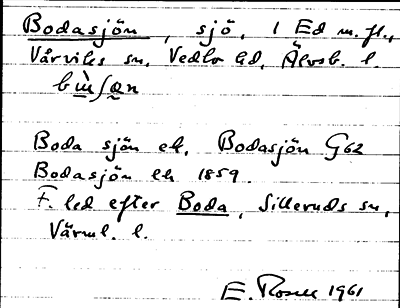 Bodasjön, sjö, i Ed m. fl.,
Vårviks sn, Vedbo hd, Älvsb. l.
Boda sjön ek. Bodasjön G62
Bodasjön lk 1859.
F. led efter Boda, Silleruds sn,
Värml. l.
E. Rosell 1961